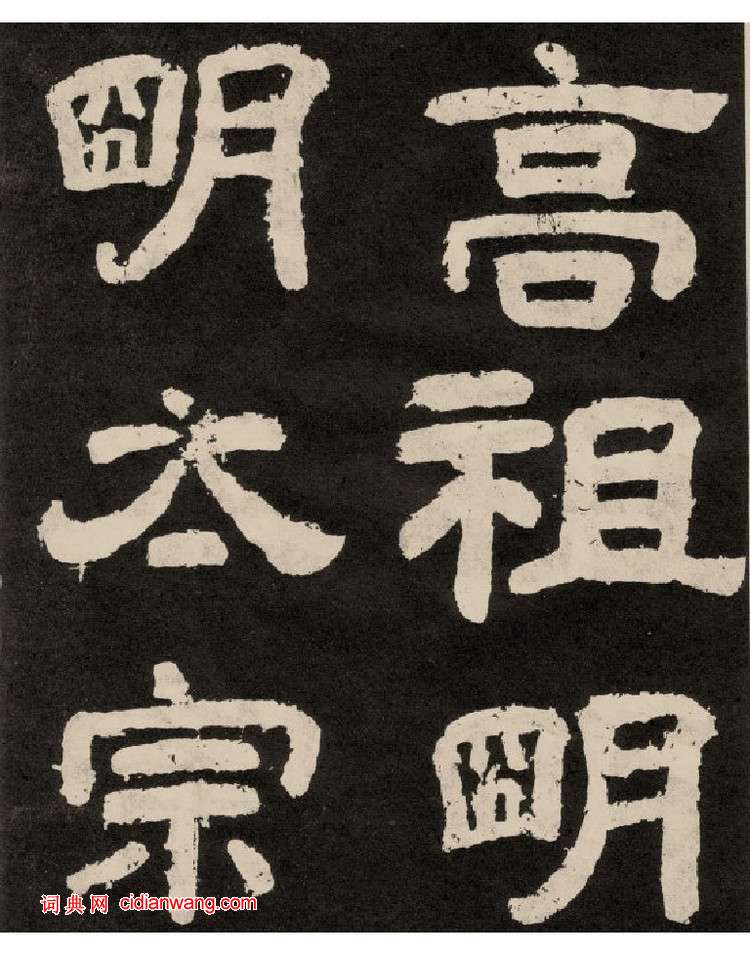 高祖朙
朙太宗
词典网 cidianwang.com